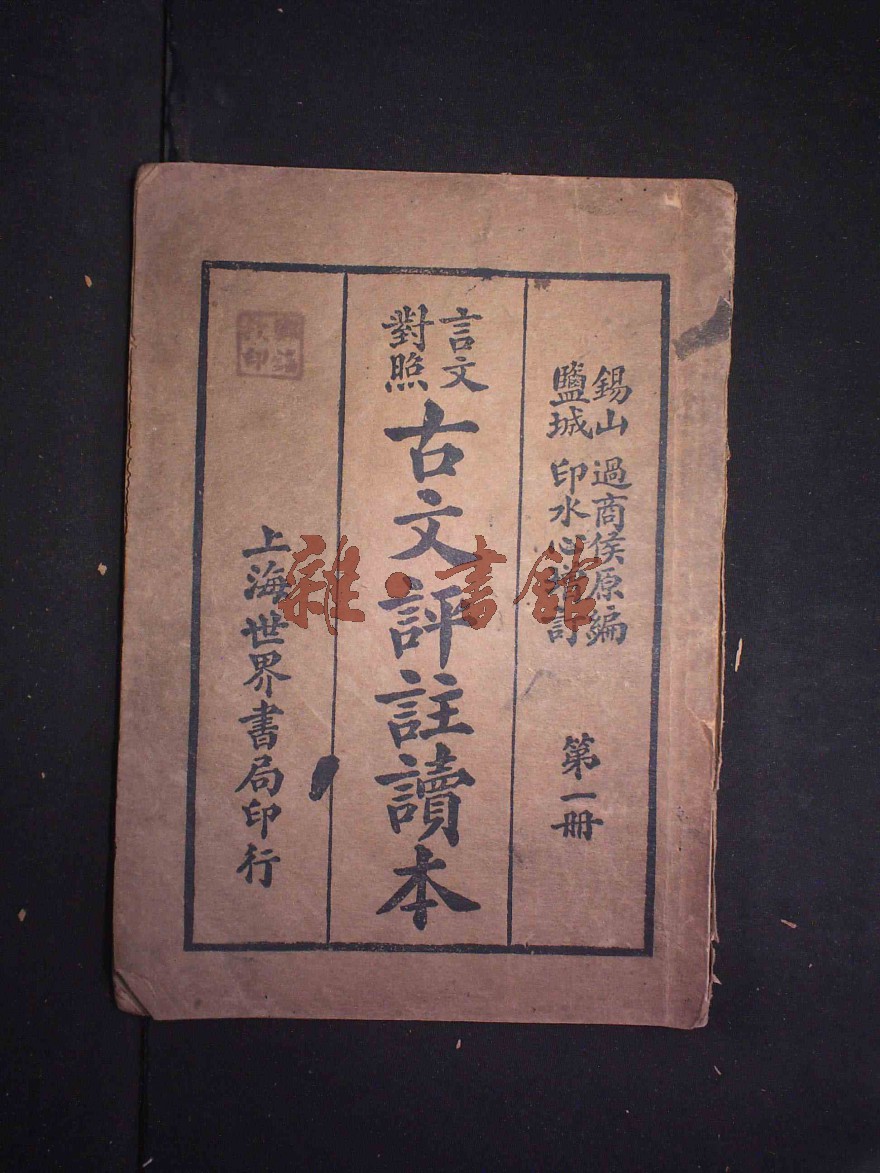 錫山 過商侯原編
鹽城 印水心增訂
第一冊
言文
對照
古文評註讀本
上海世界書局印行
雜·書館